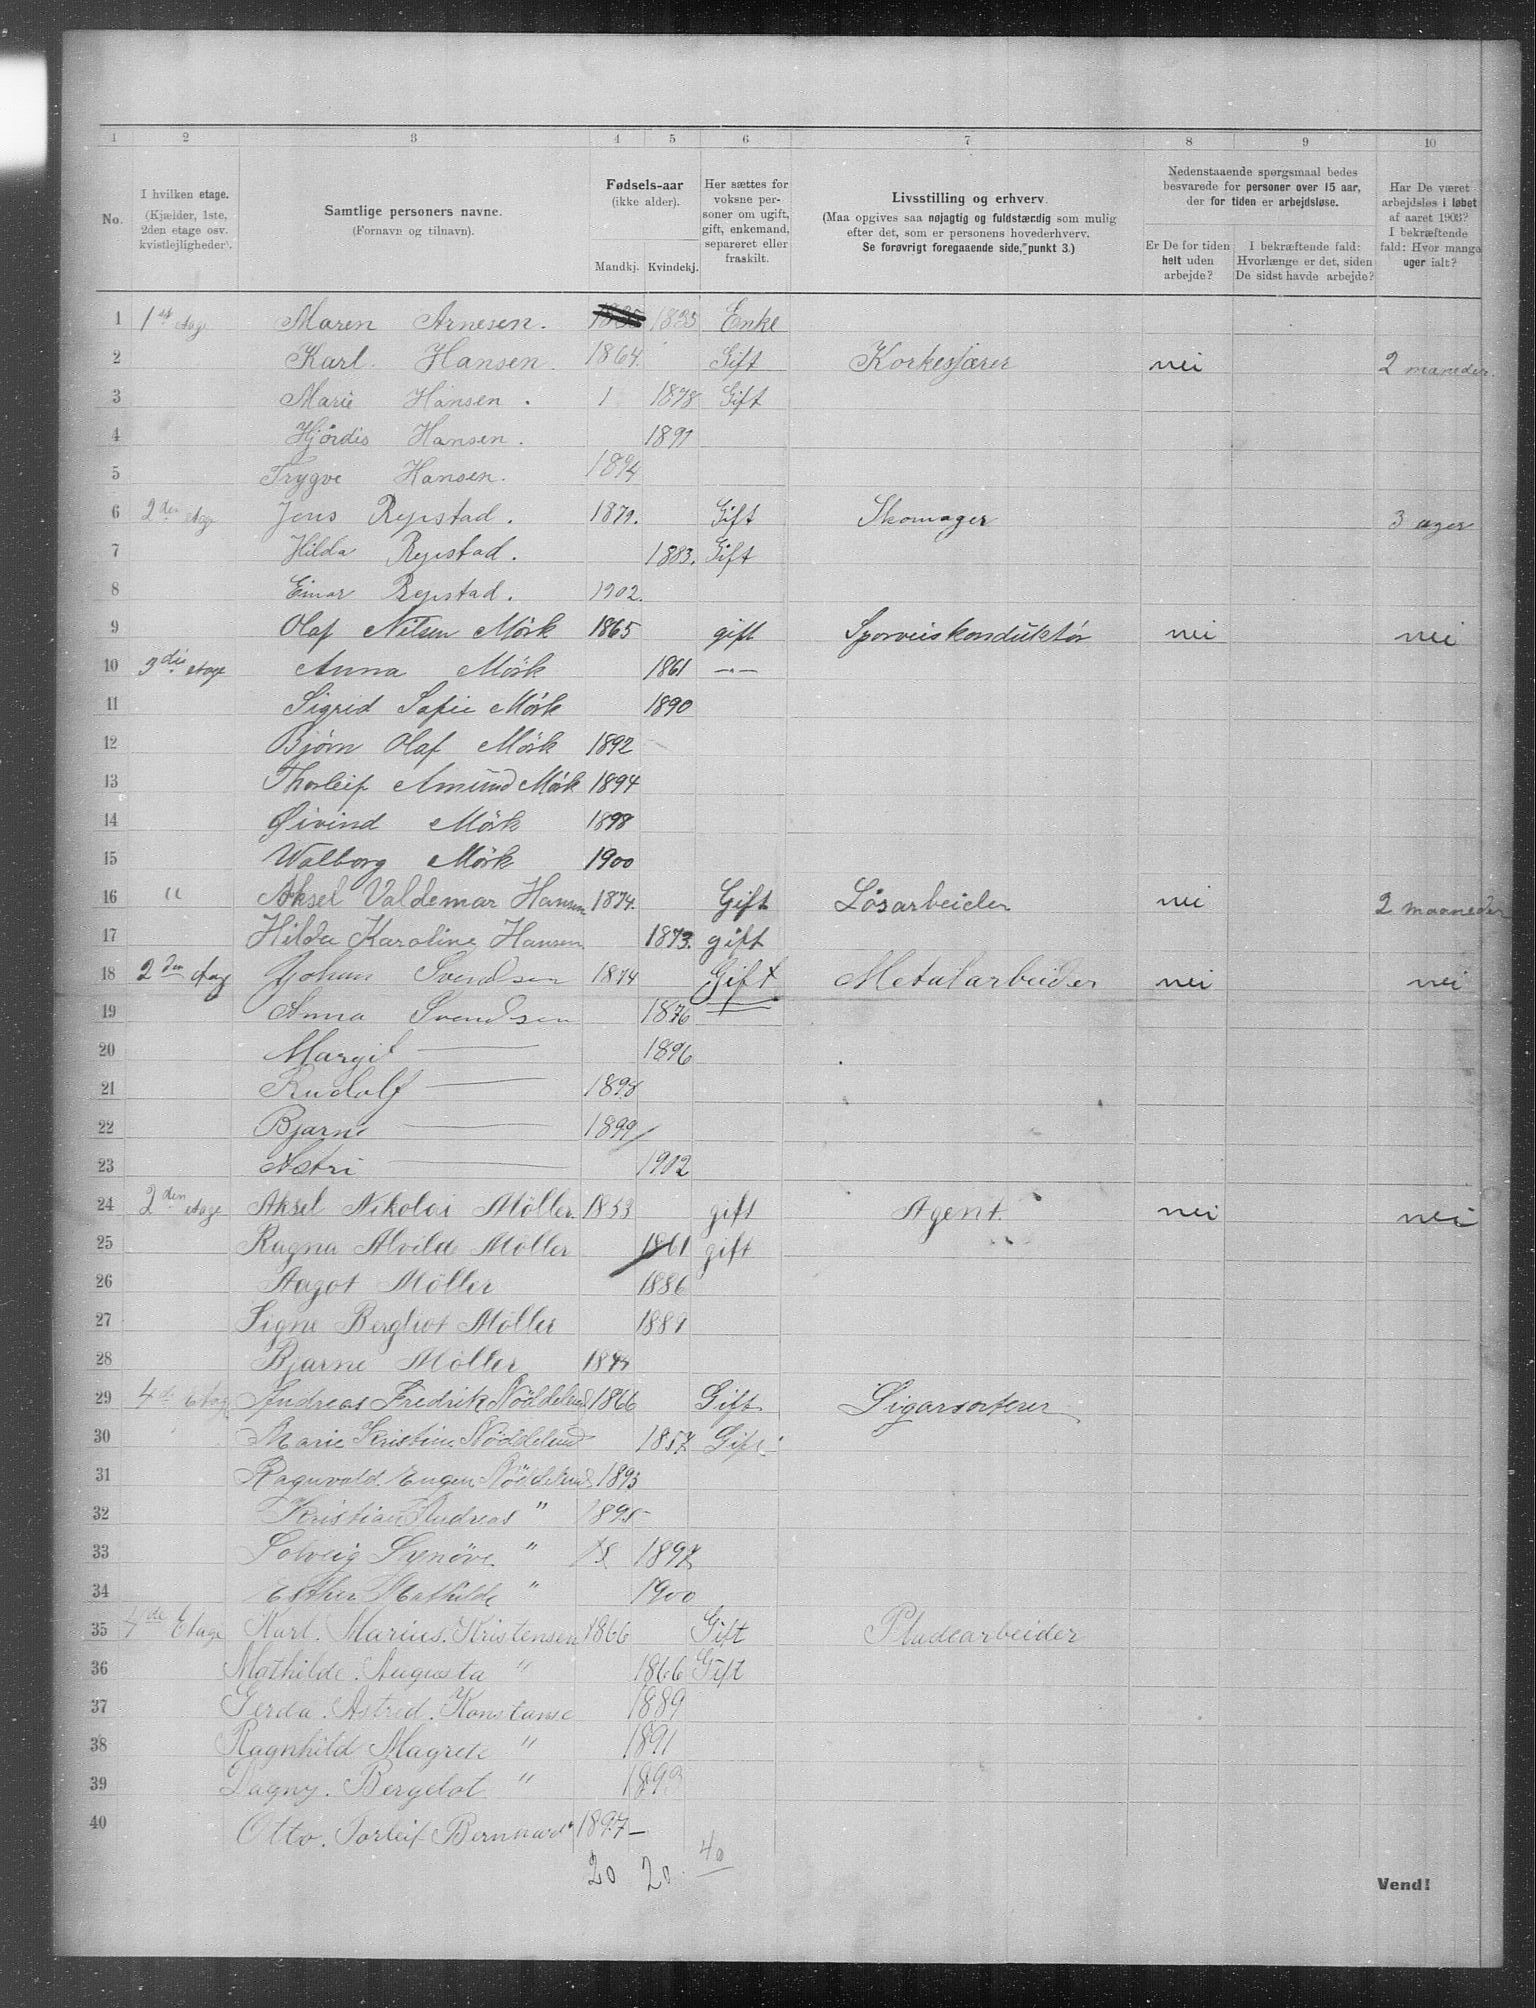 1 2 3 4 5 6 7 8 9 10
No.
I hvilken etage.
(Kjælder, 1ste,
2den etage osv.
kvistlejligheder).
Samtlige personers navne.
(Fornavn og tilnavn).
Fødsels-aar
(ikke alder).
Mandkj. Kvindekj.
Her sættes for
voksne per-
soner om ugift,
gift, enkemand,
separeret eller
fraskilt.
Livsstilling og erhverv.
(Maa opgives saa nøjagtig og fuldstændig som mulig
efter det, som er personens hovederhverv.
Se forøvrigt foregaaende side, punkt 3.)
Nedenstaaende spørgsmaal bedes
besvarede for personer over 15 aar,
der for tiden er arbejdsløse.
Er De for tiden
helt uden
arbejde?
I bekræftende fald:
Hvorlænge er det, siden
De sidst havde arbejde?
Har De været
arbejdsløs i løbet
af aaret 1903?
I bekræftende
fald: Hvor mange
uger ialt?
1 1st etage Maren Arnesen. 1835 Enke
2 Karl. Hansen. 1864. Gift Korkesjærer nei 2 maneder.
3 Marie Hansen. 1 1878 Gift
4 Hjördis Hansen. 1891
5 Trygve Hansen. 1894
6 2den etage Jens Repstad. 1879. Gift Skomager 3 uger
7 Hilda Repstad. 1883. Gift
8 Einar Repstad. 1902.
9 Olaf Nilsen Mörk 1865 gift Sporveiskonduktør nei nei
10 3die etage Anna Mörk 1861 —"—
11 Sigrid Sofie Mörk 1890
12 Bjørn Olaf Mörk 1892
13 Thorleif Amund Mörk 1894
14 Øivind Mörk 1898
15 Walborg Mörk 1900
16 " Aksel Valdemar Hansen 1874. Gift Løsarbeider nei 2 maaneder
17 Hilda Karoline Hansen 1873. gift
18 2den etag Johan Svendsen 1874 Gift Metalarbeider nei nei
19 Anna Svendsen 1876 —
20 Margit — 1896
21 Rudolf — 1898
22 Bjarne — 1899
23 Astri — 1902
24 2den etage Aksel Nikolai Möller. 1853 gift Agent. nei nei
25 Ragna Alvilde Möller 1861 gift
26 Aagot Möller 1886
27 Signe Bergliot Möller 1887
28 Bjarne Möller
29 4de etage Andreas Fredrik Nöddelund 1866 Gift Sigarsorterer
30 Marie Kristine Nöddelund 1857 Gift
31 Ragnvald. Eugen Nöddelund 1893
32 Kristian Andreas " 1895
33 Solveig Synöve " 18 1897
34 Esther Mathilde " 1900
35 4de Etage Karl. Marius. Kristensen 1866 Gift Pladearbeider
36 Mathilde. Augusta " 1866 Gift
37 Gerda. Astred. Konstanse 1889
38 Ragnhild Magrete " 1891
39 Dagny. Bergelot " 1893
40 Otto. Torleif Bernaard" 1897 —
20 20 40
Vend!